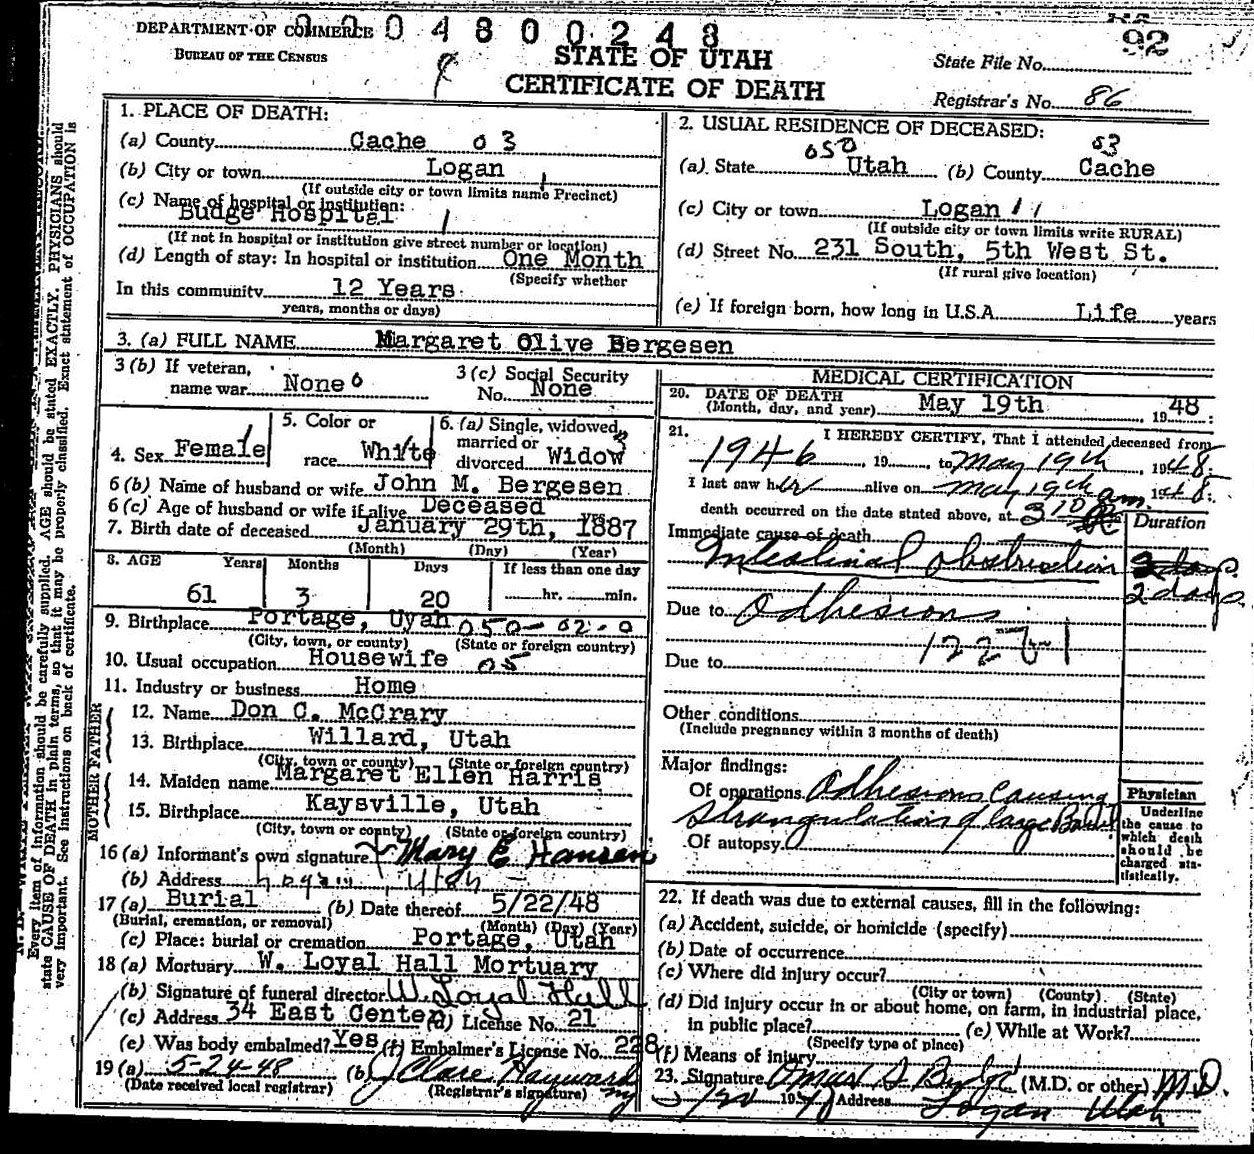 DEPARTMENT OF COMMERCE 0 0 0 4 8 0 0 2 4 3
BUREAU OF THE CENSUS
STATE OF UTAH
CERTIFICATE OF DEATH
92
State File No.
Registrar's No. 86
Every item of information should be carefully supplied. AGE should be stated EXACTLY. PHYSICIANS should
state CAUSE OF DEATH in plain terms, so that it may be properly classified. Exact statement of OCCUPATION is
very important. See instructions on back of certificate.
1. PLACE OF DEATH:
(a) County Cache 03
(b) City or town Logan 1
(If outside city or town limits name Precinct)
(c) Name of hospital or institution:
Budge Hospital 1
(If not in hospital or institution give street number or location)
(d) Length of stay: In hospital or institution One Month
(Specify whether
In this community 12 Years
years, months or days)
2. USUAL RESIDENCE OF DECEASED:
050 03
(a) State Utah (b) County Cache
(c) City or town Logan 11
(If outside city or town limits write RURAL)
(d) Street No. 231 South, 5th West St.
(If rural give location)
(e) If foreign born, how long in U.S.A. Life years
3. (a) FULL NAME Margaret Olive Bergesen
3 (b) If veteran,
name war None 0
3 (c) Social Security
No. None
4. Sex Female 1
5. Color or
race White
6. (a) Single, widowed,
married or
divorced Widow 3
6 (b) Name of husband or wife John M. Bergesen
6 (c) Age of husband or wife if alive Deceased yrs.
7. Birth date of deceased January 29th, 1887
(Month) (Day) (Year)
8. AGE Years Months Days If less than one day
61 3 20 hr. min.
9. Birthplace Portage, Uyah 050-02-0
(City, town, or county) (State or foreign country)
10. Usual occupation Housewife 05
11. Industry or business Home
FATHER
12. Name Don C. McCrary
13. Birthplace Willard, Utah
(City, town or county) (State or foreign country)
MOTHER
14. Maiden name Margaret Ellen Harris
15. Birthplace Kaysville, Utah
(City, town or county) (State or foreign country)
16 (a) Informant's own signature Mary E Hansen
(b) Address Logan, Utah
17 (a) Burial (b) Date thereof 5/22/48
(Burial, cremation, or removal) (Month) (Day) (Year)
(c) Place: burial or cremation Portage, Utah
18 (a) Mortuary W. Loyal Hall Mortuary
(b) Signature of funeral director W. Loyal Hall
(c) Address 34 East Center (d) License No. 21
(e) Was body embalmed? Yes (f) Embalmer's License No. 228
19 (a) 5-24-48 (b) J Clare Hayward
(Date received local registrar) (Registrar's signature)
MEDICAL CERTIFICATION
20. DATE OF DEATH
(Month, day, and year) May 19th, 1948
21. I HEREBY CERTIFY, That I attended deceased from
1946, 19, to May 19th, 1948.
I last saw her alive on May 19th 1948.
death occurred on the date stated above, at 310 am.
Duration
Immediate cause of death
Intestinal obstruction
2 days
Due to Adhesions
Due to
Other conditions
(Include pregnancy within 3 months of death)
Major findings:
Of operations Adhesions causing
strangulation of large Bowel
Of autopsy
Physician
Underline
the cause to
which death
should be
charged sta-
tistically.
22. If death was due to external causes, fill in the following:
(a) Accident, suicide, or homicide (specify)
(b) Date of occurrence
(c) Where did injury occur?
(City or town) (County) (State)
(d) Did injury occur in or about home, on farm, in industrial place,
in public place? (e) While at Work?
(Specify type of place)
(f) Means of injury
23. Signature Omar S Budge (M.D. or other) M.D.
Address Logan Utah